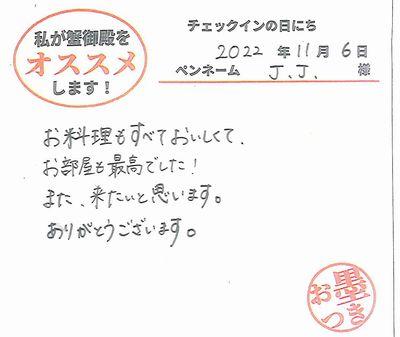 私が蟹御殿を
オススメ
します！
チェックインの日にち
2022 年 11 月 6 日
ペンネーム J.J. 様
お料理もすべておいしくて、
お部屋も最高でした！
また、来たいと思います。
ありがとうございます。
お墨つき